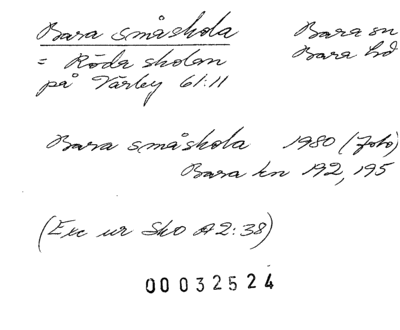 Bara småskola
Bara sn
Bara hd
= Röda skolan
på Värby 61:11
Bara småskola 1980 (foto)
Bara kn 192, 195
(Exc ur Sko A2:38)
00032524